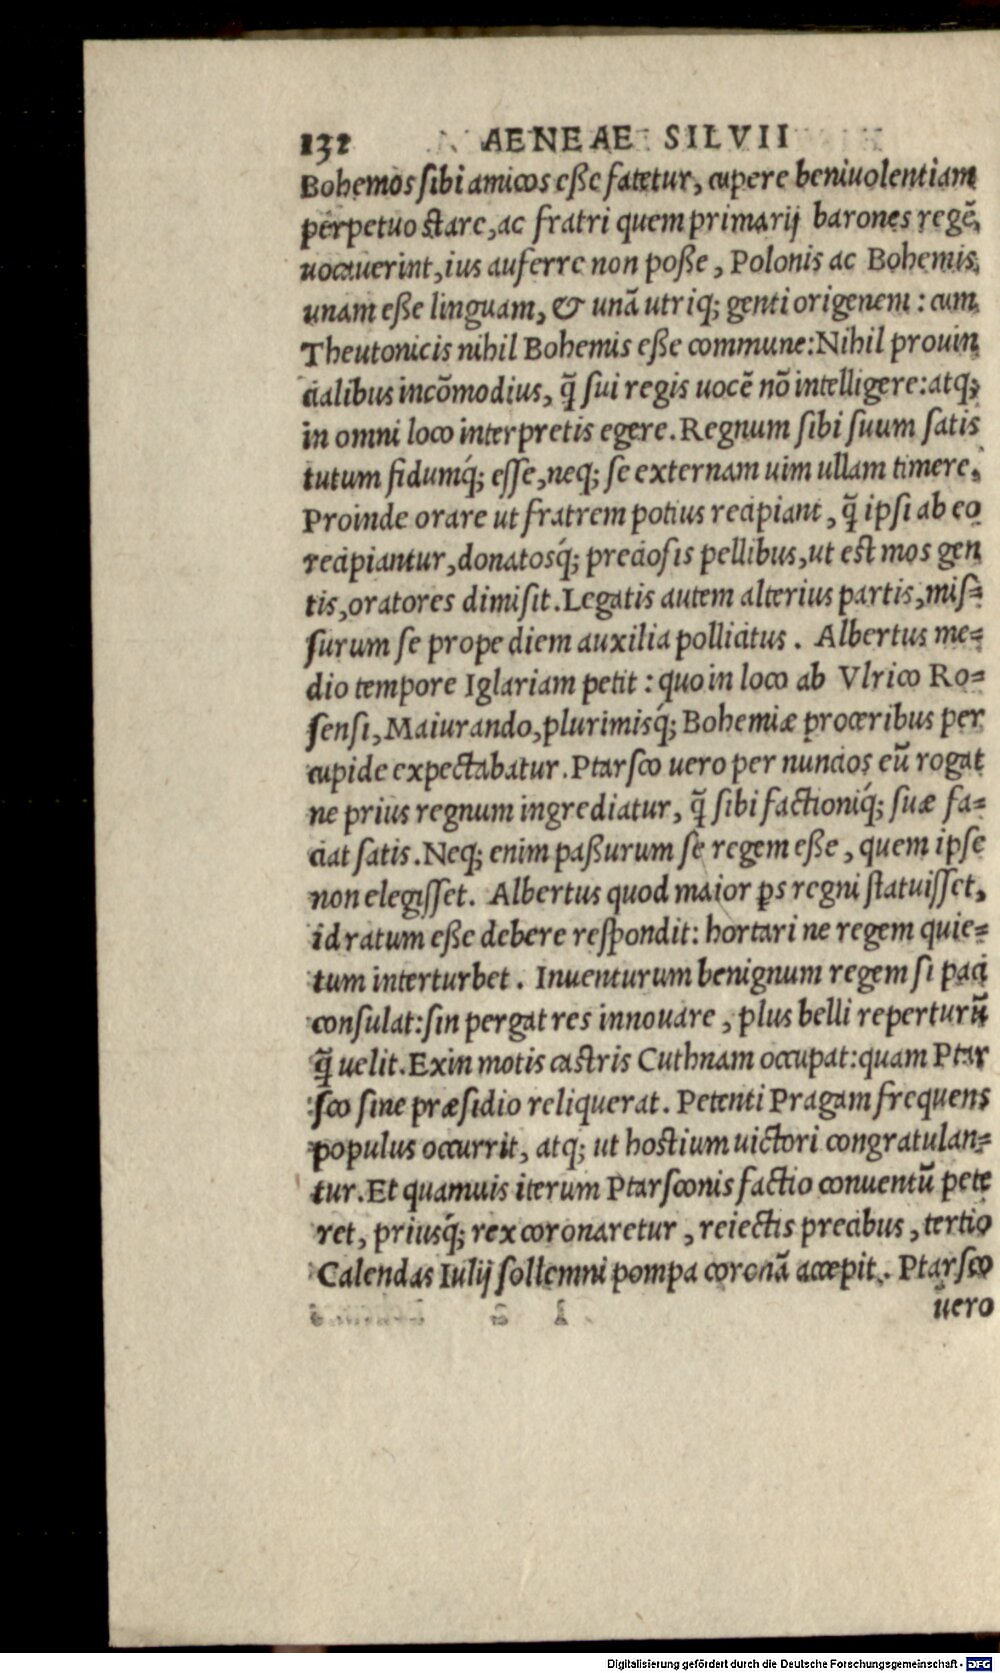 132 AENEAE SILVII
Bohemos sibi amicos eße fatetur, cupere beniuolentiam
perpetuo stare, ac fratri quem primarij barones regẽ,
uocauerint, ius auferre non poße, Polonis ac Bohemis,
unam eße linguam, & unã utriq; genti origenem: cum
Theutonicis nihil Bohemis eße commune: Nihil prouin
cialibus incõmodius, q̃ sui regis uocẽ nõ intelligere: atq;
in omni loco interpretis egere. Regnum sibi suum satis
tutum fidumq́; esse, neq; se externam uim ullam timere.
Proinde orare ut fratrem potius recipiant, q̃ ipsi ab eo
recipiantur, donatosq́; preciosis pellibus, ut est mos gen
tis, oratores dimisit. Legatis autem alterius partis, mis=
surum se prope diem auxilia pollicitus. Albertus me=
dio tempore Iglariam petit: quo in loco ab Vlrico Ro=
sensi, Maiurando, plurimisq́; Bohemiæ proceribus per
cupide expectabatur. Ptarsco uero per nuncios eũ rogat
ne prius regnum ingrediatur, q̃ sibi factioniq́; suæ fa=
ciat satis. Neq; enim paßurum se regem eße, quem ipse
non elegisset. Albertus quod maior p̱s regni statuisset,
id ratum eße debere respondit: hortari ne regem quie=
tum interturbet. Inuenturum benignum regem si paci
consulat: sin pergat res innouare, plus belli reperturũ
q̃ uelit. Exin motis castris Cuthnam occupat: quam Ptar
sco sine præsidio reliquerat. Petenti Pragam frequens
populus occurrit, atq; ut hostium uictori congratulan=
tur. Et quamuis iterum Ptarsconis factio conuentũ pete
ret, priusq́; rex coronaretur, reiectis precibus, tertio
Calendas Iulij sollemni pompa coronã accepit. Ptarsco
uero
Digitalisierung gefördert durch die Deutsche Forschungsgemeinschaft - DFG